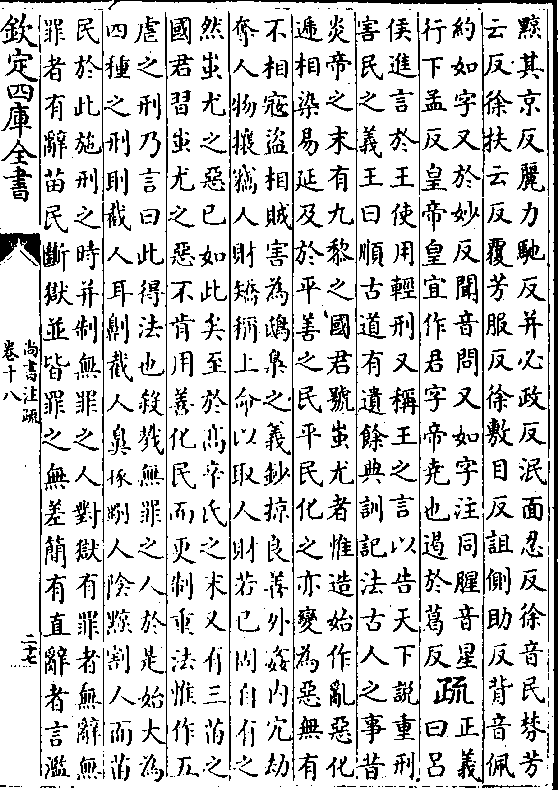 黥其京反麗力馳反并必政反泯面忍反徐音民棼芳
云反徐扶云反覆芳服反徐敷目反詛側助反背音佩
約如字又於妙反聞音問又如字注同腥音星
行下孟反皇帝皇宜作君字帝堯也遏於葛反疏正義曰吕
侯進言於王使用輕刑又稱王之言以告天下說重刑
害民之義王曰順古道有遺餘典訓記法古人之事昔
炎帝之末有九黎之國君號蚩尤者惟造始作亂惡化
遞相染易延及於平善之民平民化之亦變為惡無有
不相寇盜相賊害為鴟梟之義鈔掠良善外姦内宄劫
奪人物攘竊人財矯稱上命以取人財若已固自有之
然蚩尤之惡已如此矣至於高辛氏之末又有三苗之
國君習蚩尤之惡不肯用善化民而更制重法惟作五
虐之刑乃言曰此得法也殺戮無罪之人於是始大為
四種之刑刖截人耳劓截人鼻椓劅人陰黥割人面苗
民於此施刑之時并制無罪之人對獄有罪者無辭無
罪者有辭苗民斷獄並皆罪之無差簡有直辭者言濫
欽定四庫全書
尚書注疏
卷十八
二十七